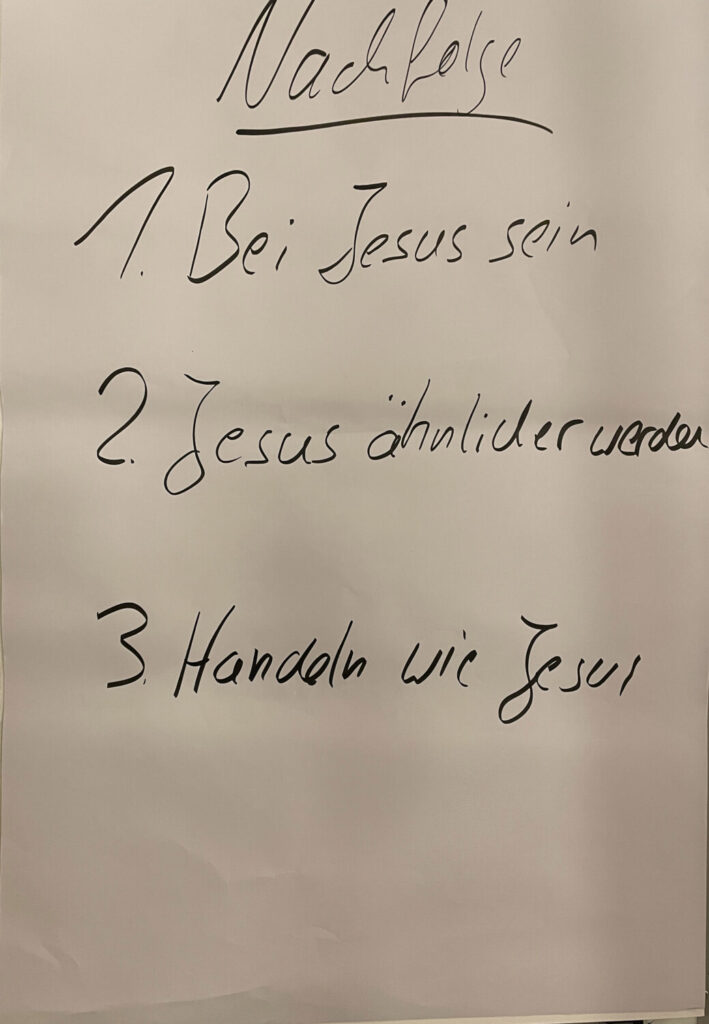 Nachfolge
1. Bei Jesus sein
2. Jesus ähnlicher werden
3. Handeln wie Jesus